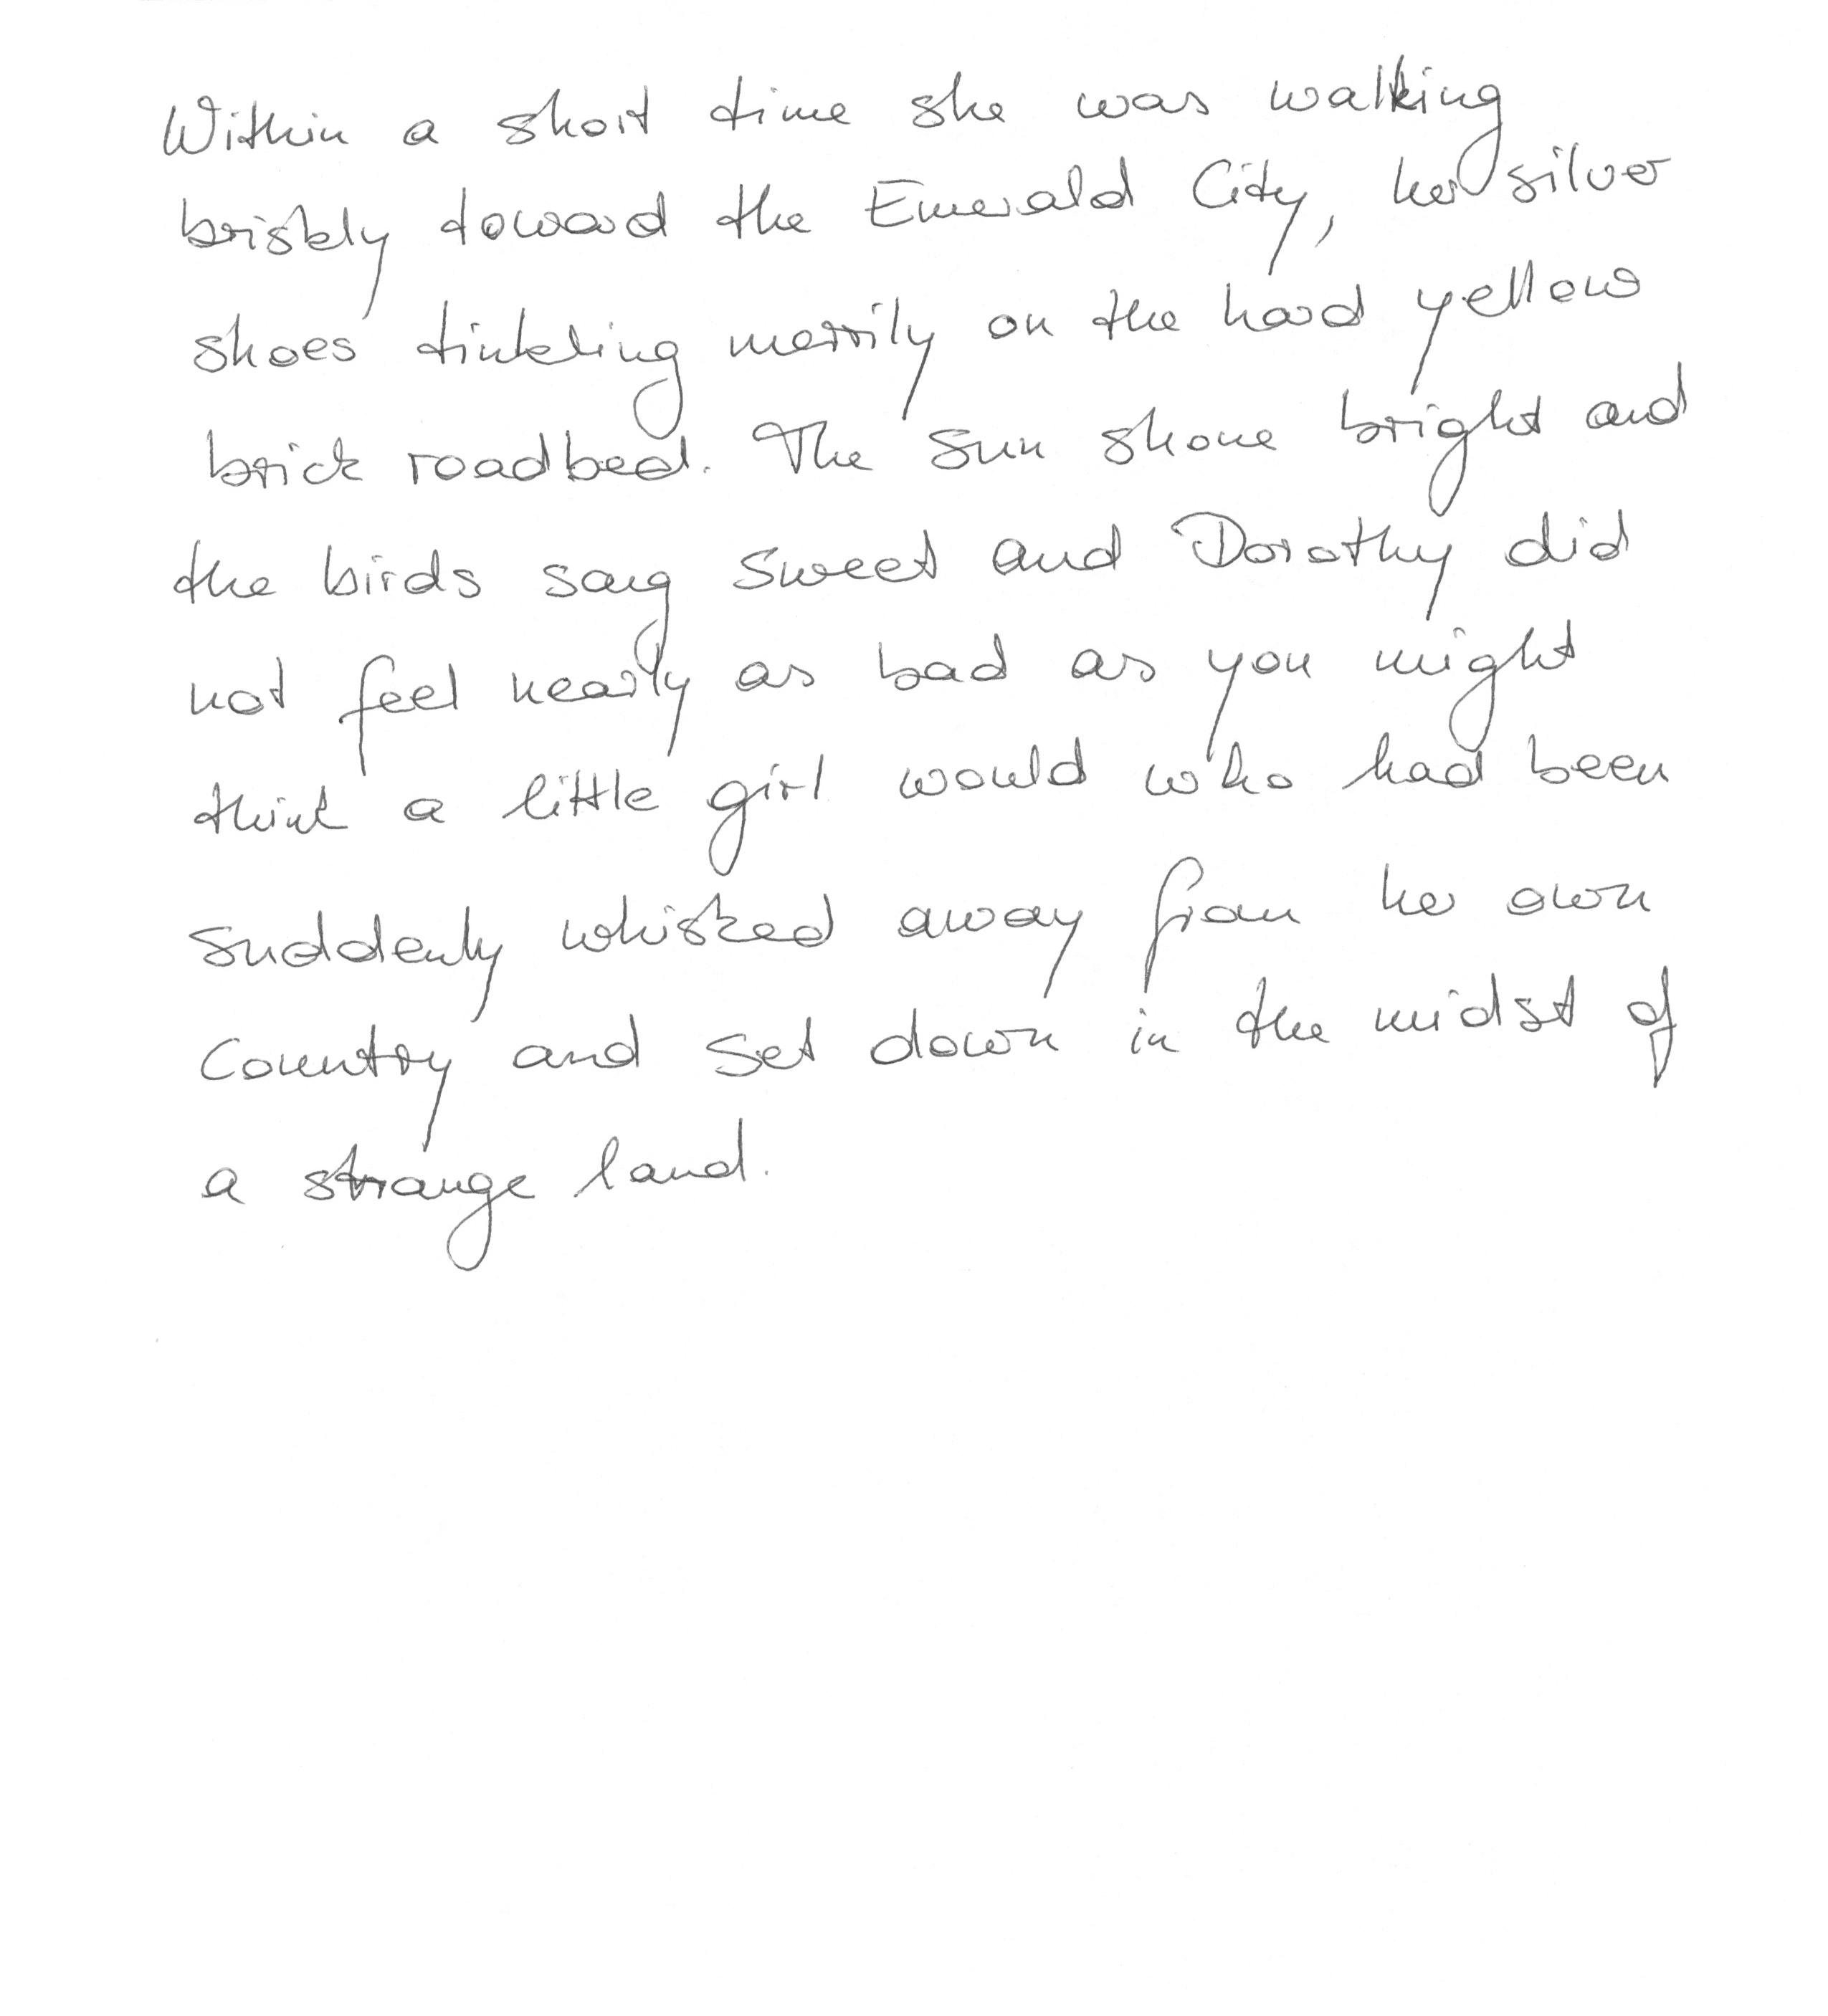 Within a short time she was walking
briskly toward the Emerald City, her silver
shoes tinkling merrily on the hard yellow
brick roadbed. The sun shone bright and
the birds sang sweet and Dorothy did
not feel nearly as bad as you might
think a little girl would who had been
suddenly whisked away from her own
country and set down in the midst of
a strange land.